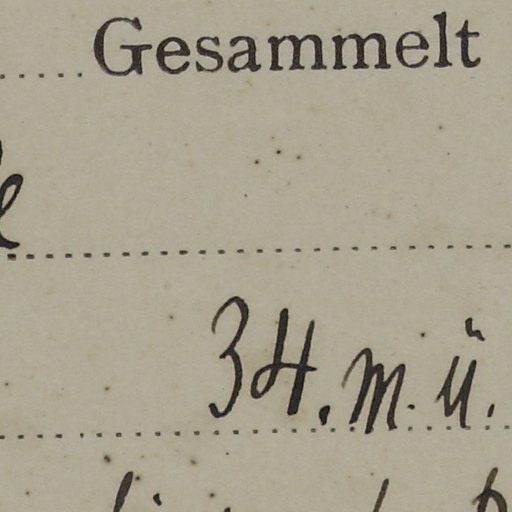 Gesammelt
34. m. ü.